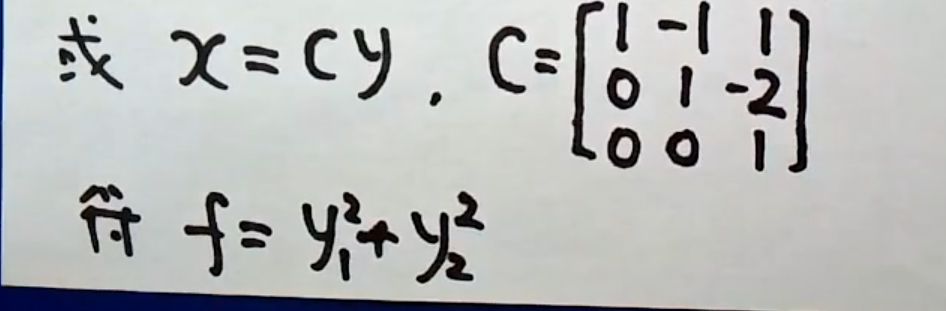 或 x = Cy , C = [1 -1 1
0 1 -2
0 0 1]
f = y₁² + y₂²